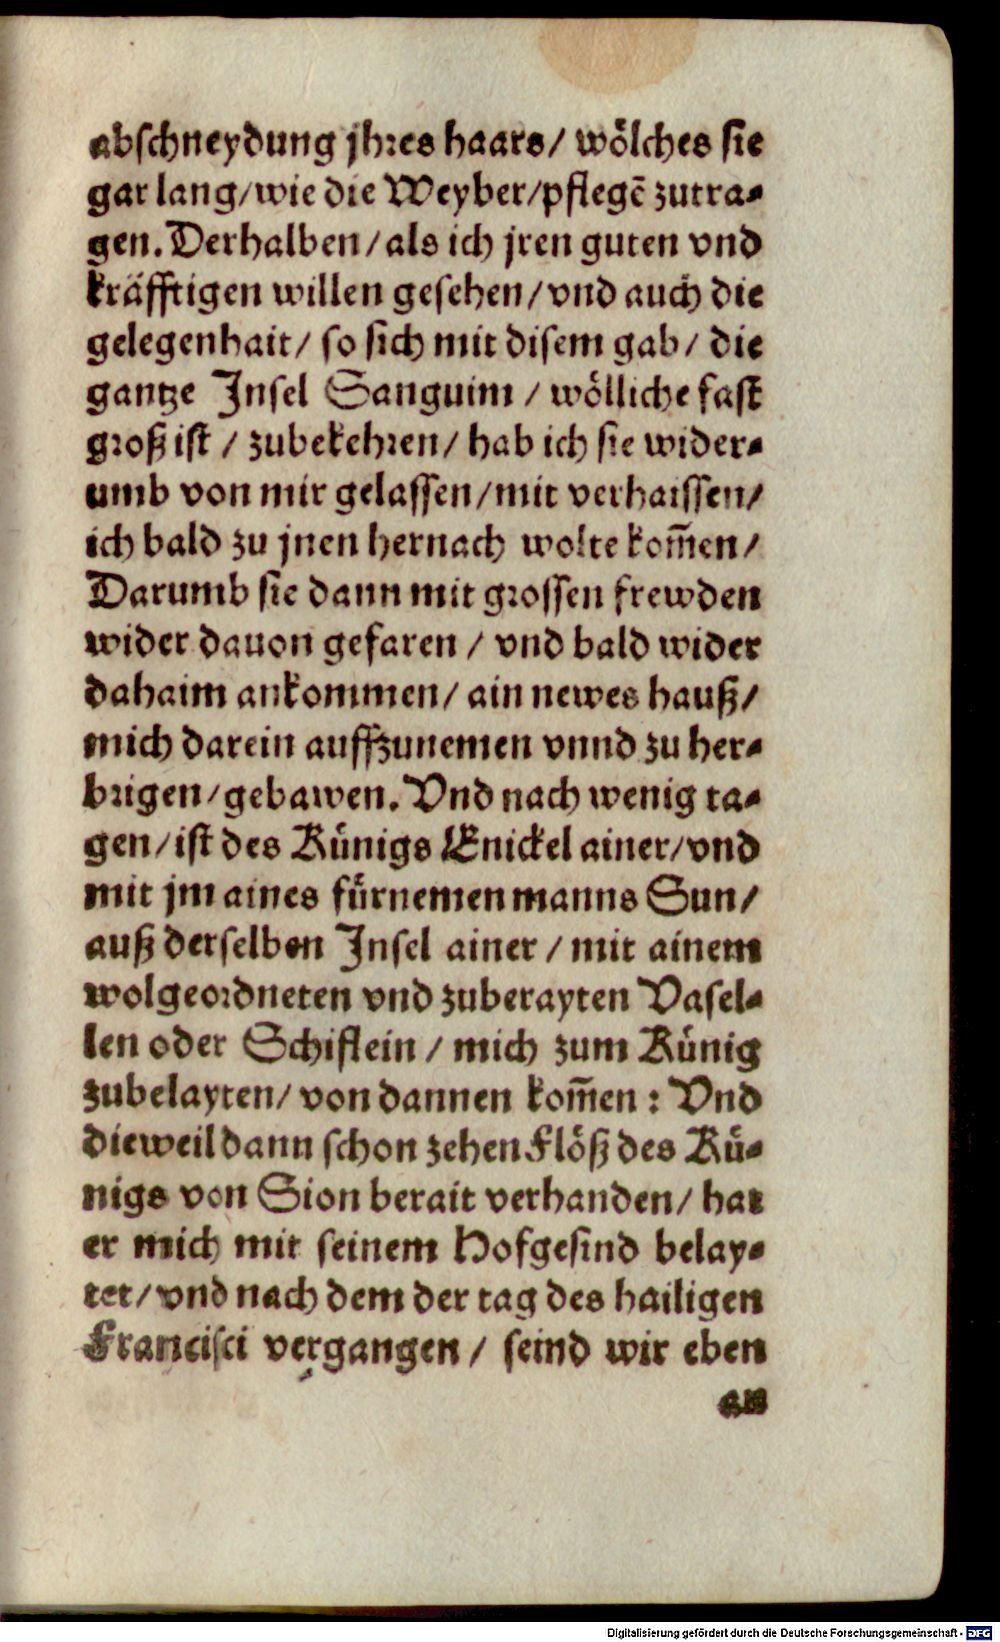 abschneydung jhres haars/ wölches sie
gar lang/wie die Weyber/pflegē zutra-
gen. Derhalben/als ich jren guten vnd
kräfftigen willen gesehen/vnd auch die
gelegenhait/ so sich mit disem gab/ die
gantze Insel Sanguim / wölliche fast
groß ist / zubekehren/ hab ich sie wider-
umb von mir gelassen/mit verhaissen/
ich bald zu jnen hernach wolte kom̄en/
Darumb sie dann mit grossen frewden
wider dauon gefaren / vnd bald wider
dahaim ankommen/ ain newes hauß/
mich darein auffzunemen vnnd zu her-
brigen/gebawen. Vnd nach wenig ta-
gen/ist des Künigs Enickel ainer/vnd
mit jm aines fürnemen manns Sun/
auß derselben Insel ainer / mit ainem
wolgeordneten vnd zuberayten Vasel-
len oder Schiflein / mich zum Künig
zubelayten/ von dannen kom̄en : Vnd
dieweil dann schon zehen Flöß des Kü-
nigs von Sion berait verhanden/ hat
er mich mit seinem Hofgesind belay-
tet/vnd nach dem der tag des hailigen
Francisci vergangen/ seind wir eben
am
Digitalisierung gefördert durch die Deutsche Forschungsgemeinschaft - DFG